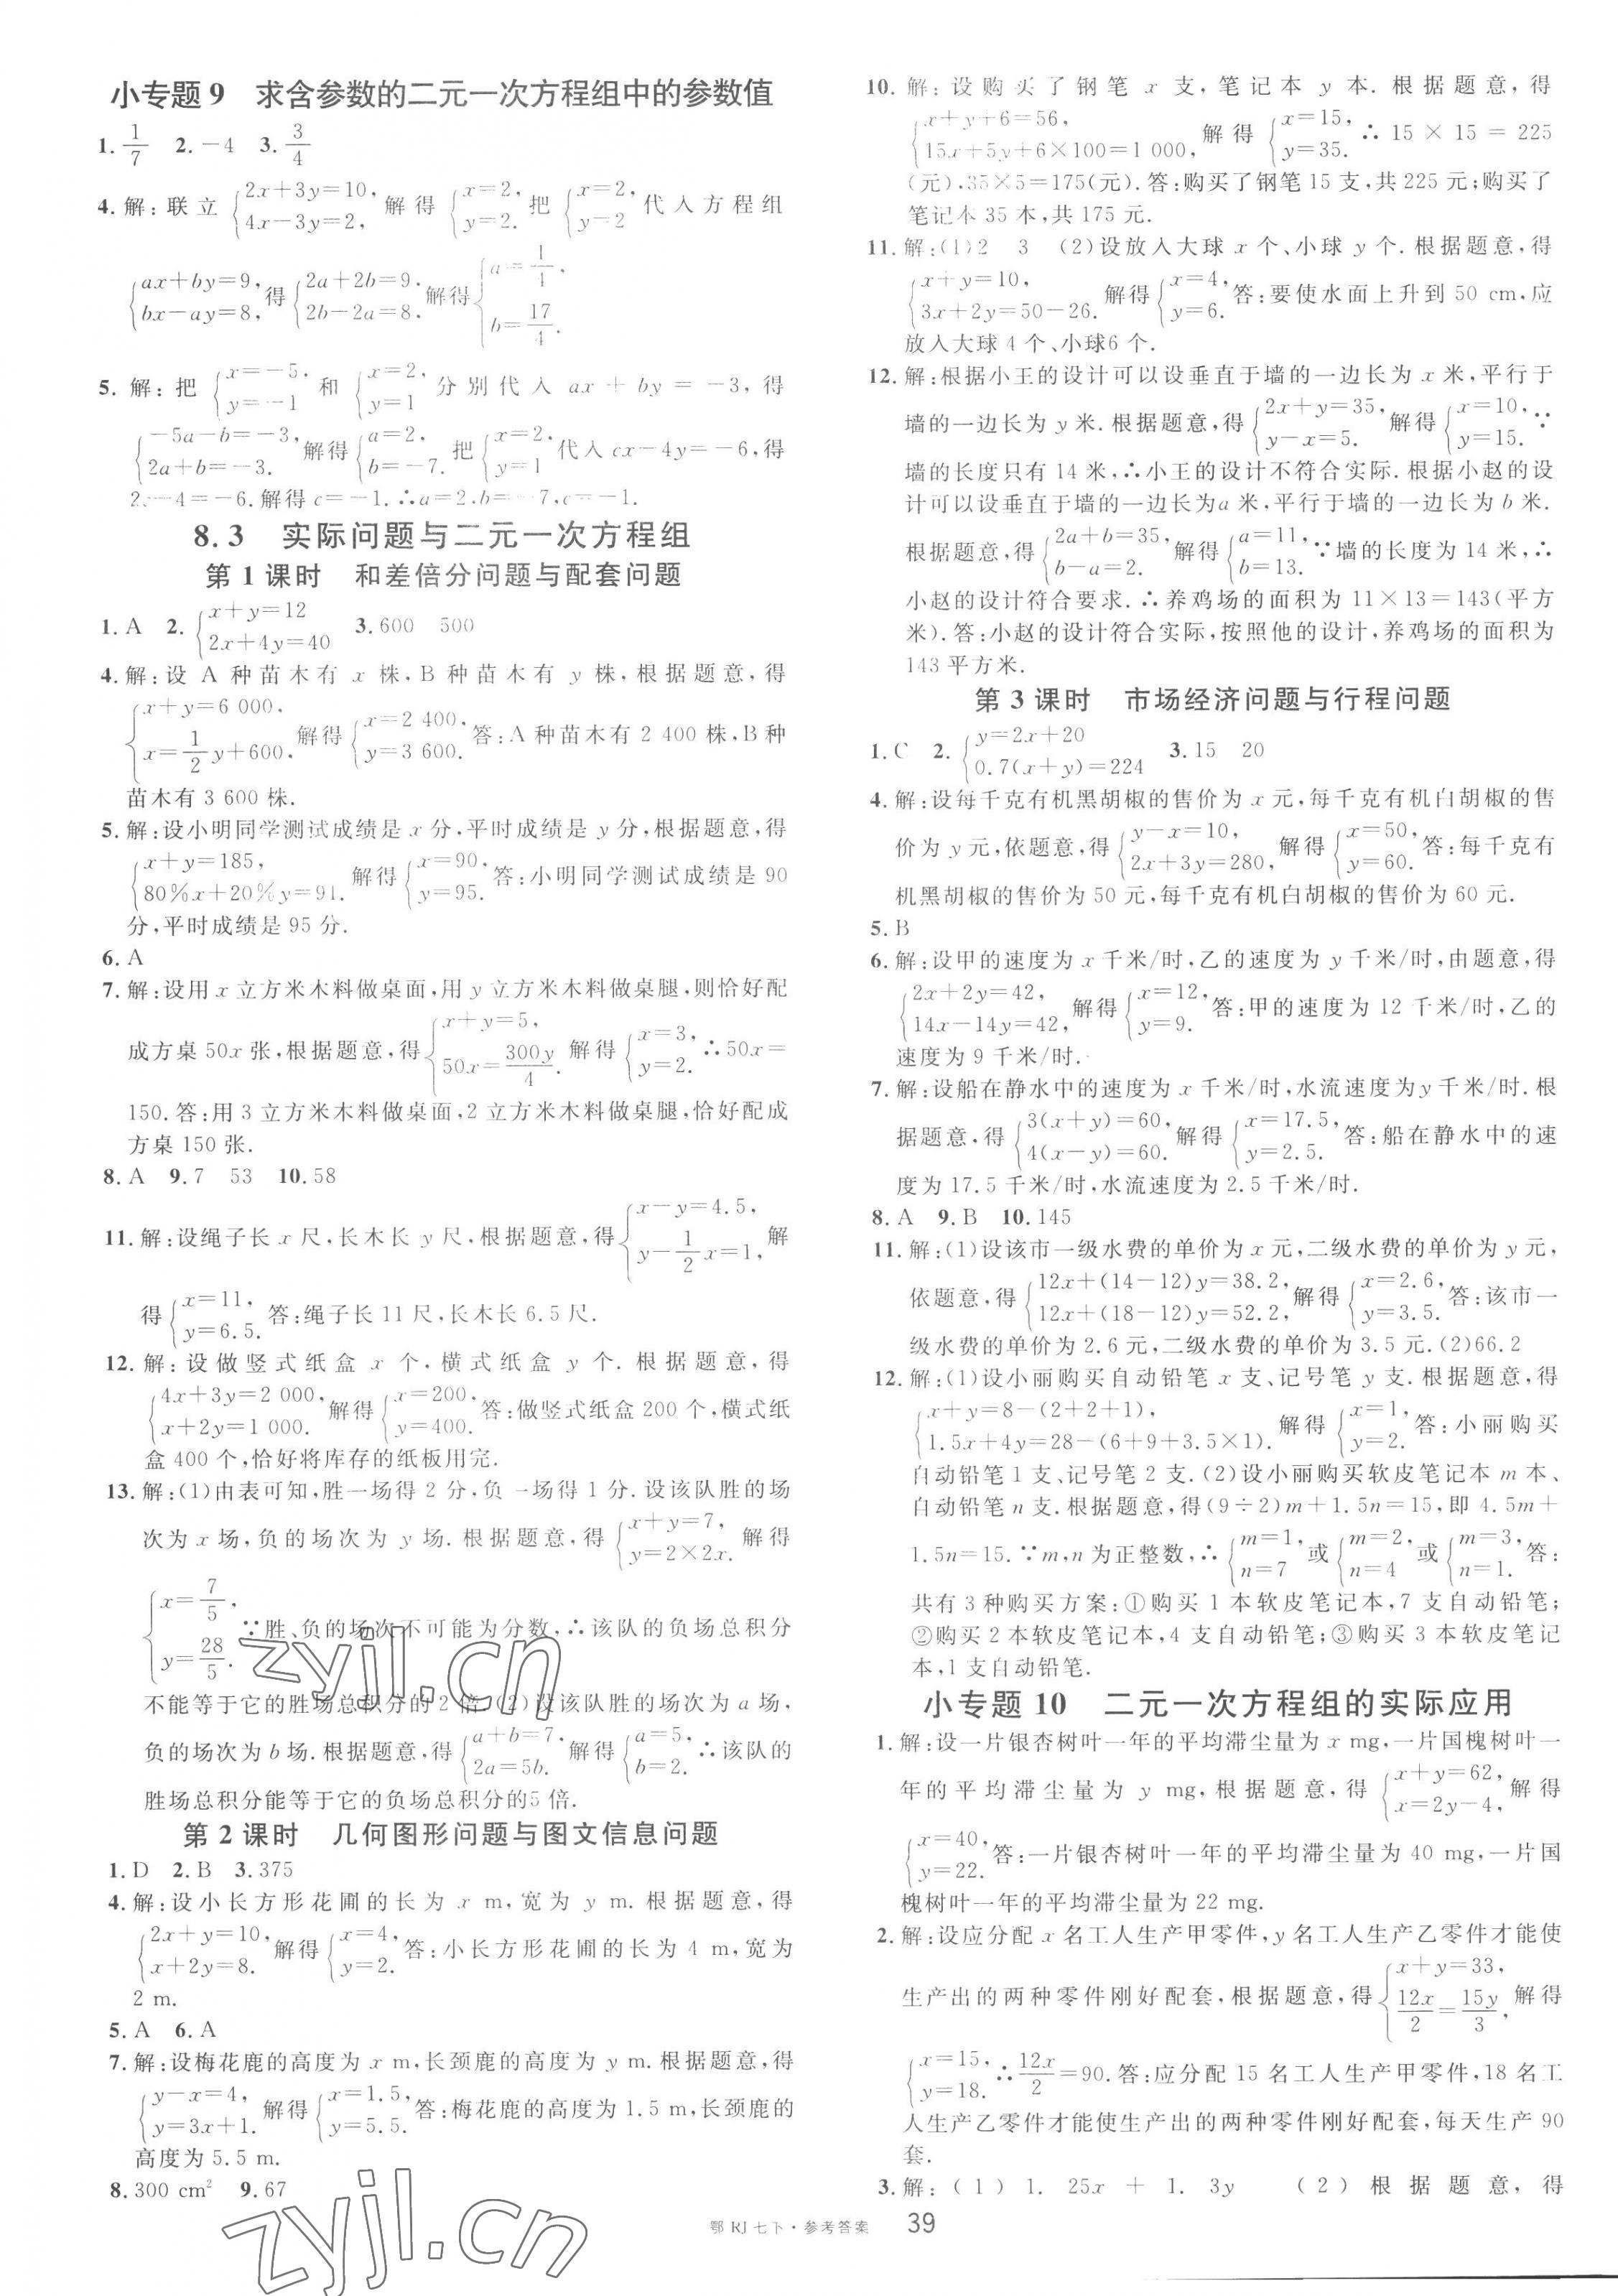 小专题 9　求含参数的二元一次方程组中的参数值
1. 1/7　2. －4　3. 3/4
4. 解：联立 {2x＋3y＝10, 4x－3y＝2, 解得 {x＝2, y＝2. 把 {x＝2, y＝2 代入方程组
{ax＋by＝9, bx－ay＝8, 得 {2a＋2b＝9. 2b－2a＝8. 解得 {a＝1/4, b＝17/4.
5. 解：把 {x＝－5, y＝－1 和 {x＝2, y＝1 分别代入 ax＋by＝－3，得
{－5a－b＝－3, 2a＋b＝－3. 解得 {a＝2, b＝－7. 把 {x＝2, y＝1 代入 cx－4y＝－6，得
2c－4＝－6. 解得 c＝－1. ∴a＝2，b＝－7，c＝－1.
8.3　实际问题与二元一次方程组
第 1 课时　和差倍分问题与配套问题
1. A　2. {x＋y＝12 2x＋4y＝40　3. 600　500
4. 解：设 A 种苗木有 x 株，B 种苗木有 y 株，根据题意，得
{x＋y＝6 000, x＝1/2 y＋600. 解得 {x＝2 400, y＝3 600. 答：A 种苗木有 2 400 株，B 种
苗木有 3 600 株.
5. 解：设小明同学测试成绩是 x 分，平时成绩是 y 分，根据题意，得
{x＋y＝185, 80%x＋20%y＝91. 解得 {x＝90, y＝95. 答：小明同学测试成绩是 90
分，平时成绩是 95 分.
6. A
7. 解：设用 x 立方米木料做桌面，用 y 立方米木料做桌腿，则恰好配
成方桌 50x 张，根据题意，得 {x＋y＝5, 50x＝300y/4. 解得 {x＝3, y＝2. ∴50x＝
150. 答：用 3 立方米木料做桌面，2 立方米木料做桌腿，恰好配成
方桌 150 张.
8. A　9. 7　53　10. 58
11. 解：设绳子长 x 尺，长木长 y 尺，根据题意，得 {x－y＝4.5, y－1/2 x＝1, 解
得 {x＝11, y＝6.5. 答：绳子长 11 尺，长木长 6.5 尺.
12. 解：设做竖式纸盒 x 个，横式纸盒 y 个. 根据题意，得
{4x＋3y＝2 000, x＋2y＝1 000. 解得 {x＝200, y＝400. 答：做竖式纸盒 200 个，横式纸
盒 400 个，恰好将库存的纸板用完.
13. 解：(1)由表可知，胜一场得 2 分，负一场得 1 分. 设该队胜的场
次为 x 场，负的场次为 y 场. 根据题意，得 {x＋y＝7, y＝2×2x. 解得
{x＝7/5, y＝28/5. ∵胜、负的场次不可能为分数，∴该队的负场总积分
不能等于它的胜场总积分的 2 倍. (2)设该队胜的场次为 a 场，
负的场次为 b 场. 根据题意，得 {a＋b＝7, 2a＝5b. 解得 {a＝5, b＝2. ∴该队的
胜场总积分能等于它的负场总积分的5 倍.
第 2 课时　几何图形问题与图文信息问题
1. D　2. B　3. 375
4. 解：设小长方形花圃的长为 x m，宽为 y m. 根据题意，得
{2x＋y＝10, x＋2y＝8. 解得 {x＝4, y＝2. 答：小长方形花圃的长为 4 m，宽为
2 m.
5. A　6. A
7. 解：设梅花鹿的高度为 x m，长颈鹿的高度为 y m. 根据题意，得
{y－x＝4, y＝3x＋1. 解得 {x＝1.5, y＝5.5. 答：梅花鹿的高度为 1.5 m，长颈鹿的
高度为 5.5 m.
8. 300 cm²　9. 67
10. 解：设购买了钢笔 x 支，笔记本 y 本. 根据题意，得
{x＋y＋6＝56, 15x＋5y＋6×100＝1 000, 解得 {x＝15, y＝35. ∴15×15＝225
(元)，35×5＝175(元). 答：购买了钢笔 15 支，共 225 元；购买了
笔记本 35 本，共 175 元.
11. 解：(1)2　3　(2)设放入大球 x 个、小球 y 个. 根据题意，得
{x＋y＝10, 3x＋2y＝50－26. 解得 {x＝4, y＝6. 答：要使水面上升到 50 cm，应
放入大球 4 个、小球6 个.
12. 解：根据小王的设计可以设垂直于墙的一边长为 x 米，平行于
墙的一边长为 y 米. 根据题意，得 {2x＋y＝35, y－x＝5. 解得 {x＝10, y＝15. ∵
墙的长度只有 14 米，∴小王的设计不符合实际. 根据小赵的设
计可以设垂直于墙的一边长为a 米，平行于墙的一边长为 b 米.
根据题意，得 {2a＋b＝35, b－a＝2. 解得 {a＝11, b＝13. ∵墙的长度为 14 米，∴
小赵的设计符合要求. ∴养鸡场的面积为 11×13＝143(平方
米). 答：小赵的设计符合实际，按照他的设计，养鸡场的面积为
143 平方米.
第 3 课时　市场经济问题与行程问题
1. C　2. {y＝2x＋20 0.7(x＋y)＝224　3. 15　20
4. 解：设每千克有机黑胡椒的售价为 x 元，每千克有机白胡椒的售
价为 y 元，依题意，得 {y－x＝10, 2x＋3y＝280, 解得 {x＝50, y＝60. 答：每千克有
机黑胡椒的售价为 50 元，每千克有机白胡椒的售价为 60 元.
5. B
6. 解：设甲的速度为 x 千米/时，乙的速度为 y 千米/时，由题意，得
{2x＋2y＝42, 14x－14y＝42, 解得 {x＝12, y＝9. 答：甲的速度为 12 千米/时，乙的
速度为 9 千米/时.
7. 解：设船在静水中的速度为 x 千米/时，水流速度为y 千米/时. 根
据题意，得 {3(x＋y)＝60, 4(x－y)＝60. 解得 {x＝17.5, y＝2.5. 答：船在静水中的速
度为 17.5 千米/时，水流速度为 2.5 千米/时.
8. A　9. B　10. 145
11. 解：(1)设该市一级水费的单价为 x 元，二级水费的单价为 y 元，
依题意，得 {12x＋(14－12)y＝38.2, 12x＋(18－12)y＝52.2, 解得 {x＝2.6, y＝3.5. 答：该市一
级水费的单价为 2.6 元，二级水费的单价为 3.5 元. (2)66.2
12. 解：(1)设小丽购买自动铅笔 x 支、记号笔 y 支. 根据题意，得
{x＋y＝8－(2＋2＋1), 1.5x＋4y＝28－(6＋9＋3.5×1). 解得 {x＝1, y＝2. 答：小丽购买
自动铅笔 1 支、记号笔 2 支. (2)设小丽购买软皮笔记本 m 本、
自动铅笔 n 支. 根据题意，得(9÷2)m＋1.5n＝15，即 4.5m＋
1.5n＝15. ∵m，n 为正整数，∴ {m＝1, n＝7 或 {m＝2, n＝4 或 {m＝3, n＝1. 答：
共有 3 种购买方案：①购买 1 本软皮笔记本，7 支自动铅笔；
②购买 2 本软皮笔记本，4 支自动铅笔；③购买 3 本软皮笔记
本，1 支自动铅笔.
小专题 10　二元一次方程组的实际应用
1. 解：设一片银杏树叶一年的平均滞尘量为 x mg，一片国槐树叶一
年的平均滞尘量为 y mg，根据题意，得 {x＋y＝62, x＝2y－4, 解得
{x＝40, y＝22. 答：一片银杏树叶一年的平均滞尘量为 40 mg，一片国
槐树叶一年的平均滞尘量为 22 mg.
2. 解：设应分配 x 名工人生产甲零件，y 名工人生产乙零件才能使
生产出的两种零件刚好配套，根据题意，得 {x＋y＝33, 12x/2＝15y/3, 解得
{x＝15, y＝18. ∴12x/2＝90. 答：应分配 15 名工人生产甲零件，18 名工
人生产乙零件才能使生产出的两种零件刚好配套，每天生产 90
套.
3. 解：(1) 1.25x＋1.3y　(2) 根据题意，得
鄂 RJ 七下·参考答案　39
zyjl.cn
zyjl.cn